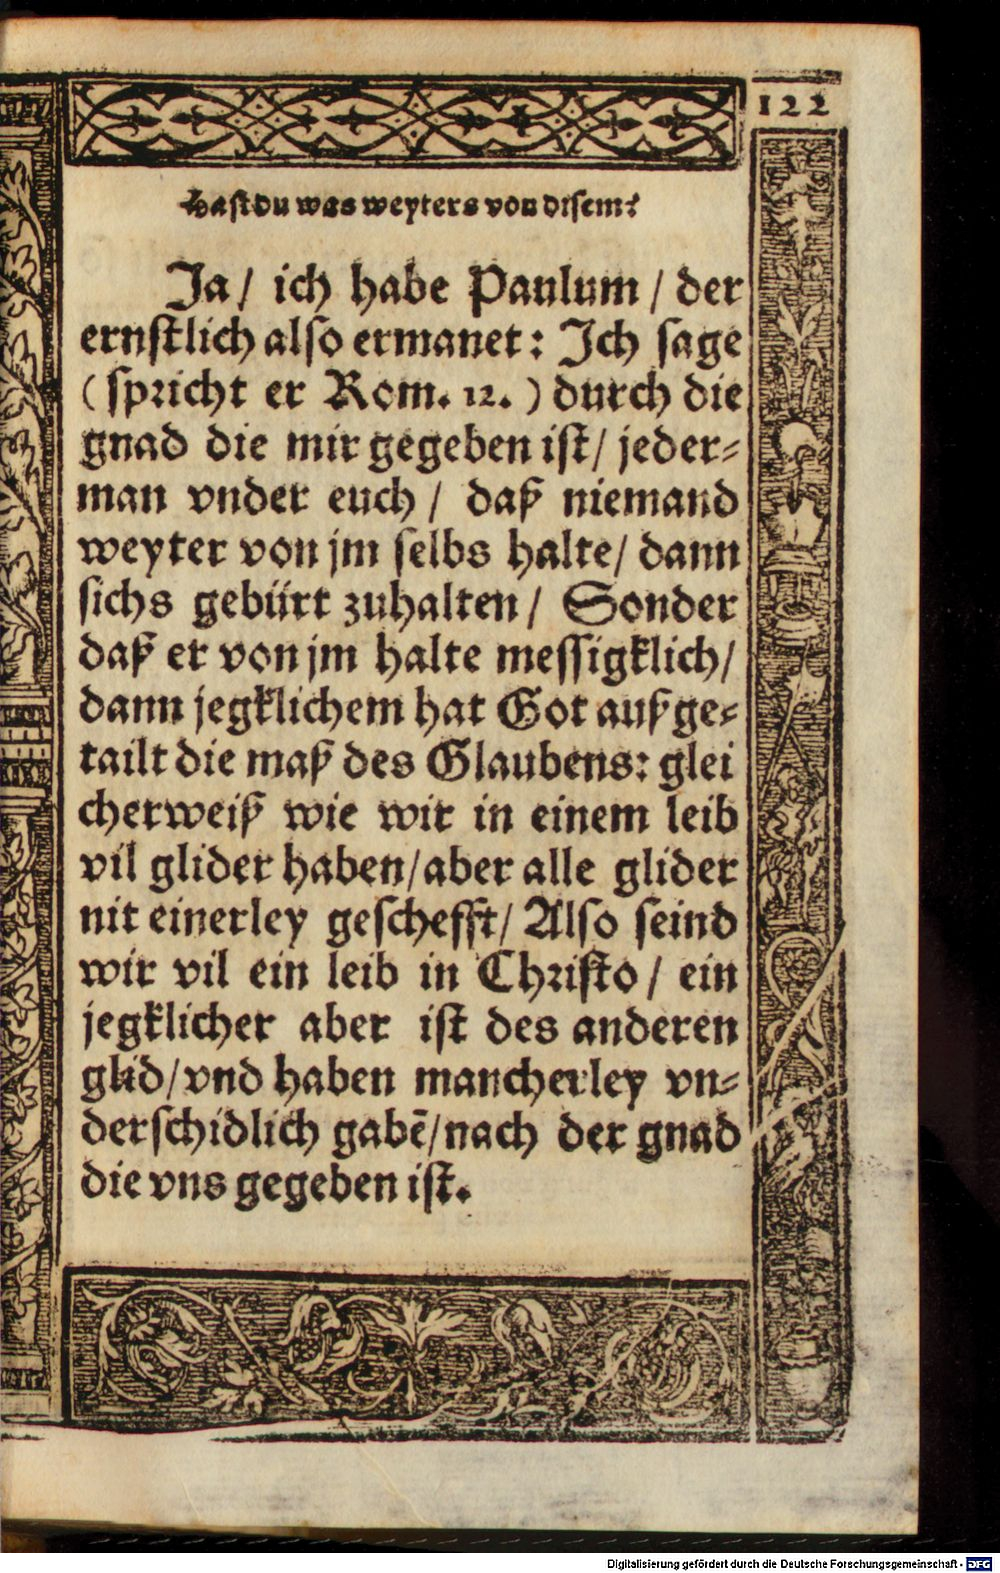 122
Hast du was weyters von disem?
Ja/ ich habe Paulum/ der
ernstlich also ermanet: Ich sage
(spricht er Rom. 12.) durch die
gnad die mir gegeben ist/ jeder-
man vnder euch/ daß niemand
weyter von jm selbs halte/ dann
sichs gebürt zuhalten/ Sonder
daß er von jm halte messigklich/
dann jegklichem hat Got außge-
tailt die maß des Glaubens: glei
cherweiß wie wir in einem leib
vil glider haben/ aber alle glider
nit einerley geschefft/ Also seind
wir vil ein leib in Christo/ ein
jegklicher aber ist des anderen
glid/ vnd haben mancherley vn-
derschidlich gabē/ nach der gnad
die vns gegeben ist.
Digitalisierung gefördert durch die Deutsche Forschungsgemeinschaft - DFG